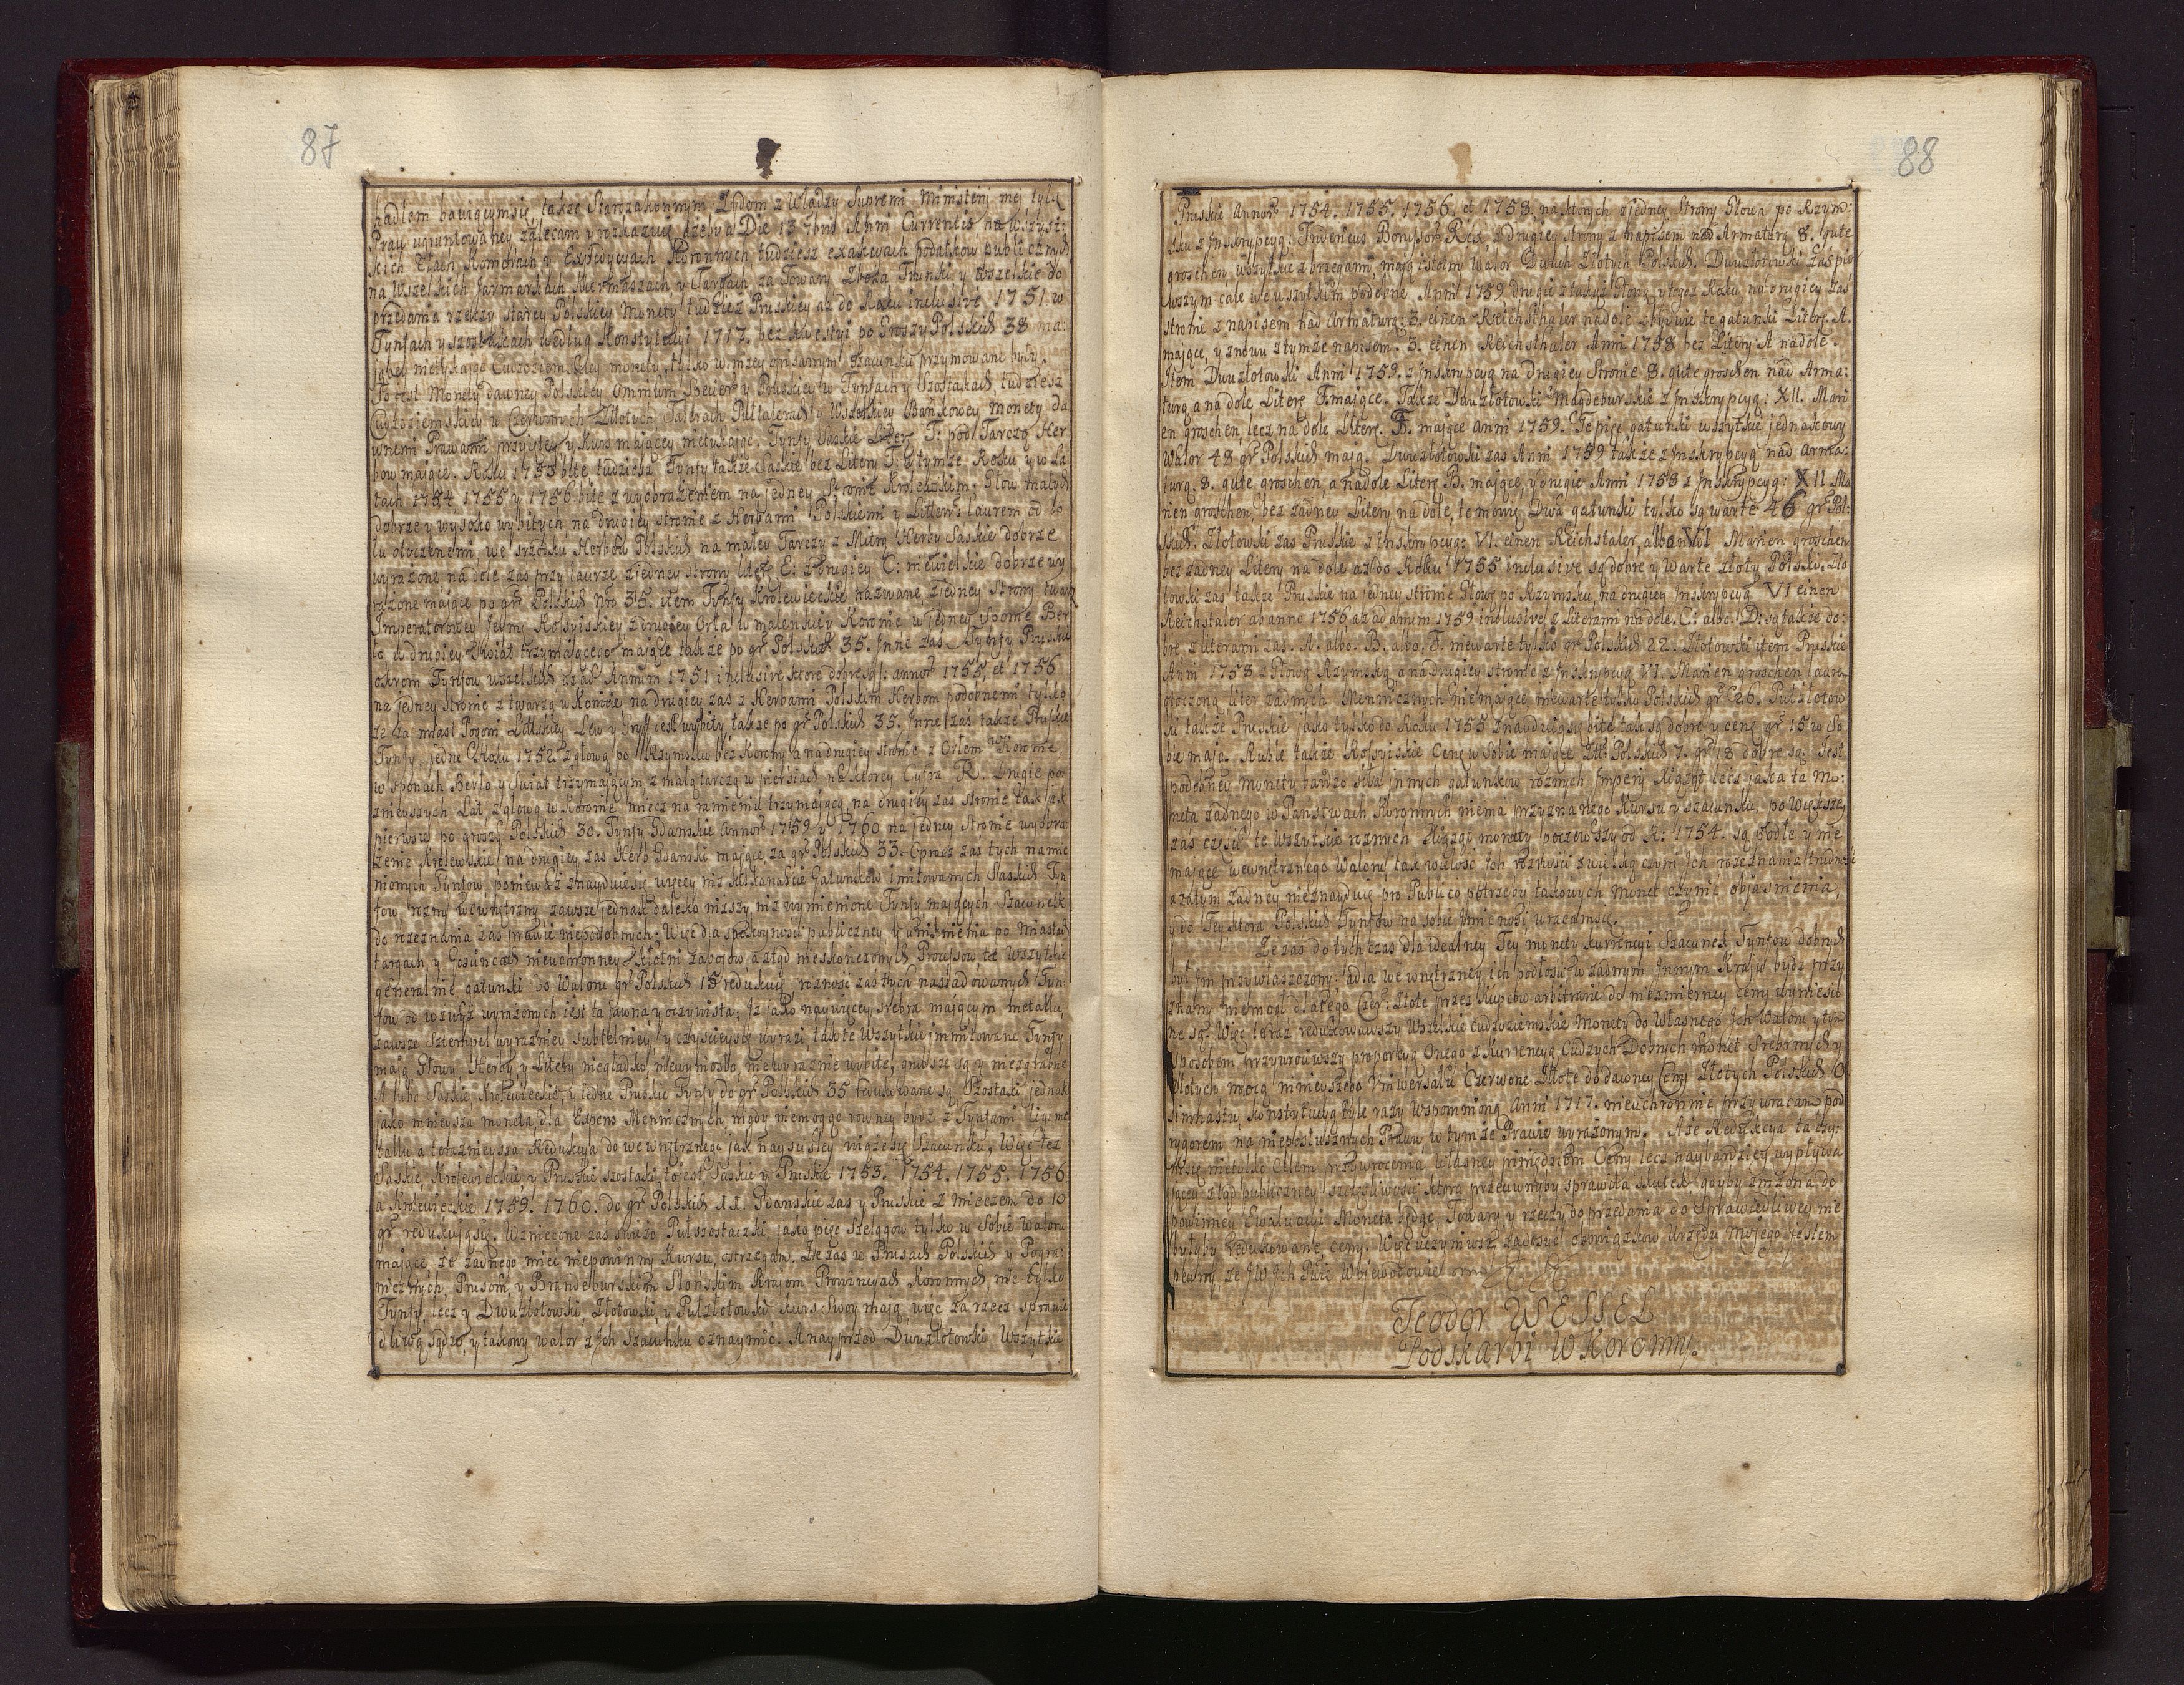 87
hadlem bawiącymsię, także Starozakonnym Żydom z Władzy Supremi Ministerij mej tylą
Praw ugruntowaney zalecam y rozkazuię ażeby a Die 13 7bris Anni Currentis na wszyst:
kich Cłach Komorach y Expedycyach Koronnych tudziesz exakcyach podatkow publicznych
na Wszelkich Jarmarkach Kiermaszach y Targach, za Towary Zboża Trunki y wszelkie do
przedania rzeczy starey Polskiey Monety tudziesz Pruskiey aż do Roku inclusive 1751 w
Tynfach y szostakach według Konstytucyi 1717. bez kwestyi po Groszy Polskich 38 ma:
jącey nietykając Cudzoziemskiey monety, tylko w niżey opisanym szacunku przymowane były.
To jest Monety dawney Polskiey Omnium Specier: y Pruskiey w Tynfach y Szostakach tudziesz
Cudzoziemskiey w Czerwonych Złotych Talerach Pułtalerach y Wszelkiey Bankowey monety da
wnemi Prawami przyiętey y Kurs maiącey nietykając. Tynfy Saskie Liter T: pod Tarczą Her
bow mające. Roku 1753 bite tudziesz Tynfy także Saskie bez Litery T: w tymże Roku y w La
tach 1754 1755 y 1756 bite z wyobrażeniem na jedney Stronie Krolewskim Głow małych
dobrze y wysoko wybitych, na drugiey stronie z Herbami Polskiemi y Littew: laurem od do
łu otoczonemi, we srzodku Herbow Polskich na małey Tarczy z Mitrą Herby Saskie dobrze
wyrażone na dole zaś przy laurze z jedney strony literę E: z drugiey C: niewielkie dobrze wy
rażone mające po gr: Polskich Nro 35. item Tynfy Krolewieckie nazwane, z jedney Strony twarz
Imperatorowey Jeymci Rossyiskiey z drugiey Orła w maleńkiey Koronie w jedney Sponie Ber
ło w drugiey Swiat trzymaiącego mające także po gr: Polskich 35. Inne zaś Tynfy Pruskie
okrom Tynfow wszelkich, aż ad Annum 1751 inclusive ktore dobre są: annor: 1755, et 1756
na jedney Stronie z twarzą w Koronie na drugiey zaś z Herbami Polskim Herbom podobnemi tylko
że za miast Pogoni Littskiey Lew y Gryff jest wybity także po gr: Polskich 35. Inne zaś także Pruskie
Tynfy jedne Roku 1752. z głową po Rzymsku bez Korony a na drugiey stronie z Orłem w Koronie
w sponach Berło y Swiat trzymającym z małą tarczą w piersiach na ktorey Cyfra R. Drugie po
znieyszych Lat, z głową w Koronie miecz na ramieniu trzymającą na drugiey zaś stronie tak jak
pierwsze po groszy Polskich 30. Tynfy Gdanskie Annor: 1759 y 1760 na jedney Stronie wyobra
żenie Krolewskie na drugiey zaś Herb Gdanski mające za gr: Polskich 33. Oprocz zaś tych namie
nionych Tynfow, ponieważ znayduiesię więcey niż kilkanaście Gatunkow imitowanych Saskich Tyn
fow, rożny wewnętrzny zawsze jednak daleko niższy niż wymienione Tynfy maiących Szacunek
do rozeznania zaś prawie niepodobnych. Więc dla spokoyności publiczney y uniknienia po Miastach
targach, y Goscincach nieuchronney Kłotni zaboiow, a ztąd nieskończonych Processow te Wszytkie
generalnie gatunki do Waloru gr: Polskich 15 redukuię, rożność zaś tych nasladowanych Tyn
fow od wzwyż wyrażonych iest ta jawna y oczywista: Iż jako naywięcey srebra mającym metallu,
zawsze Sztempel wyrażniey subtelniey y czyściey się wyrazi, tak te Wszytkie immitowane Tynfy
mają Głowy Herby y Litery niegładko niewyniosło, niewyraznie wybite, grubsze są y niezgrabne
A lubo Saskie, Krolewieckie, y jedne Pruskie Tynfy do gr: Polskich 35 redukowane są. Szostaki jednak
jako mnieysza moneta, dla Expens Mennicznych nigdy niemogąc rowney bydz z Tynfami ligi me
tallu a teraznieysza Redukcya do wewnętrznego jak nayscisley wiąże się Szacunku, Więc też
Saskie, Krolewieckie, y Pruskie szostaki, to iest Saskie y Pruskie 1753. 1754. 1755. 1756
a Krolewieckie 1759. 1760. do gr: Polskich XI. Gdanskie zaś y Pruskie z mieczem do 10
gr: redukuią się. Wzniecone zaś swieżo Pułszostaczki, jako pięc Szelągow tylko w Sobie Waloru
mające, że żadnego mieć niepowinny Kursu ostrzegam. Że zaś w Prusach Polskich y Pogra:
nicznych, Prusom, y Brandeburskim Sląnskim Krajom Prowincyach Koronnych, nie tylko
Tynfy, lecz y Dwuzłotowki, Złotowki, y Pułzłotowki Kurs Swoy mają, więc za rzecz sprawie
dliwą sądzę, y takowy walor z Ich Szacunku oznaymić. A nayprzod Dwuzłotowki Wszytkie
88
Pruskie Annor: 1754. 1755. 1756. et 1758. na ktorych z jedney Strony Głowa po Rzym:
sku z Inskrypcyą: Fridericus Borussor: Rex z drugiey strony z napisem nad Armaturą 8. gute
groschen, wszytkie z brzegami, mają istotny Walor Dwuch Złotych Polskich. Dwuzłotowki zaś pier
wszym cale we wszytkim podobne, Anni 1759 drugie z takąż Głową y tegoż Roku na drugiey zaś
stronie z napisem nad Armaturą: 3. einen Reichsthaler na dole obydwie te gatunki Literę A.
mające, y znowu z tymże napisem. 3. einen Reichsthaler Anni 1758 bez Litery A na dole.
Item Dwuzłotowki Anni 1759. z Inskrypcyą na drugiey Stronie 8. gute groschen nad Arma:
turą a na dole Literę F. mające. Także Dwuzłotowki Magdeburskie z Inskrypcyą: XII. Mari
en groschen, lecz na dole Literę. F. mające Anni 1759. Te pięć gatunki wszytkie jednakowy
Walor 48 gr: Polskich mają. Dwuzłotowki zaś Anni 1759 także z Inskrypcyą nad Arma:
turą. 8. gute groschen, a na dole Literę B. mające, y drugie Anni 1758 z Inskrypcyą: XII Ma
rien groschen, bez żadney Litery na dole, te mowię Dwa gatunki tylko są warte 46 gr: Pol:
skich. Złotowki zaś Pruskie z Inskrypcyą: VI. einen Reichstaler, albo VI Marien groschen
bez żadney Litery na dole aż do Roku 1755 inclusive są dobre y warte złoty Polski. Zło
towki zaś także Pruskie na jedney stronie Głowę po Rzymsku, na drugiey Inskrypcyą VI einen
Reichstaler ab anno 1756 aż ad anum 1759 inclusive, z Literami na dole. C: albo. D: są także do:
bre, z literami zaś. A. albo. B. albo. F. niewarte tylko gr: Polskich 22. Złotowki item Pruskie
Anni 1758 z Głową Rzymską, a na drugiey stronie z Inskrypcyą VI. Marien groschen laurem
otoczoną liter żadnych Mennicznych niemające niewarte tylko Polskich gr: 26. Pułzłotow
ki także Pruskie jako tylko do Roku 1755 znayduią się bite tak są dobre y cenę gr: 15 w So
bie mają. Ruble także Rossyiskie Cenę w Sobie mające Zł: Polskich 7. gr: 18 dobre są. Jest
podobney Monety bardzo siła innych gatunkow rożnych Imperij Xiążąt lecz jako ta Mo:
neta żadnego w Państwach Koronnych niema przyznanego Kursu y szacunku, po większey
zaś części te wszytkie rożnych Xiążąt monety poczowszy od R: 1754. są podłe y nie
mające wewnętrznego Waloru tak wielość Ich rożność zwiększa czym Ich rozeznania trudność
a zatym żadney nieznayduię pro Publico potrzeby takowych monet czynić objasnienia,
y do Tey ktora Polskich Tynfow na sobie Imie nosi wracamsię.
Że zaś do tych czas dla idealney Tey monety kurrencyi Szacunek Tynfow dobrych
był im przywłaszczony a dla wewnętrzney ich podłości w żadnym Innym Kraju bydz przy
znany niemogł dlatego Czer: Złote przez Kupcow arbitralnie do niezmierney ceny wyniesio
ne są. Więc teraz redukowawszy Wszelkie cudzoziemskie Monety do Własnego Ich Waloru y tym
sposobem przywrociwszy proporcyą Onego z Kurrencyą Cudzych Dobrych monet Srebrnych y
Złotych mocą ninieyszego Uniwersału Czerwone Złote do dawney Ceny Złotych Polskich O
simnastu, Konstytucyą tyle razy Wspomnioną Anni 1717. nieuchronnie przywracam pod
rygorem na nieposłusznych Prawu w tymże Prawie wyrażonym. A że Redukcya ta czy:
nisię nietylko Celem przywrocenia Własney pieniędzom Ceny lecz naybardziey wypływa
jącey ztąd publiczney szczęśliwości ktora przeciwnyby sprawiła skutek gdyby zniżona do
powinney Ewaluacyi Moneta będąc, Towary y rzeczy do przedania do Sprawiedliwey nie
byłyby redukowane ceny. Więc uczyniwszy zadosyć obowiązkow Urzędu mojego jestem
pewny, że JW Ich
Teodor WESSEL
Podskarbi W Koronny.